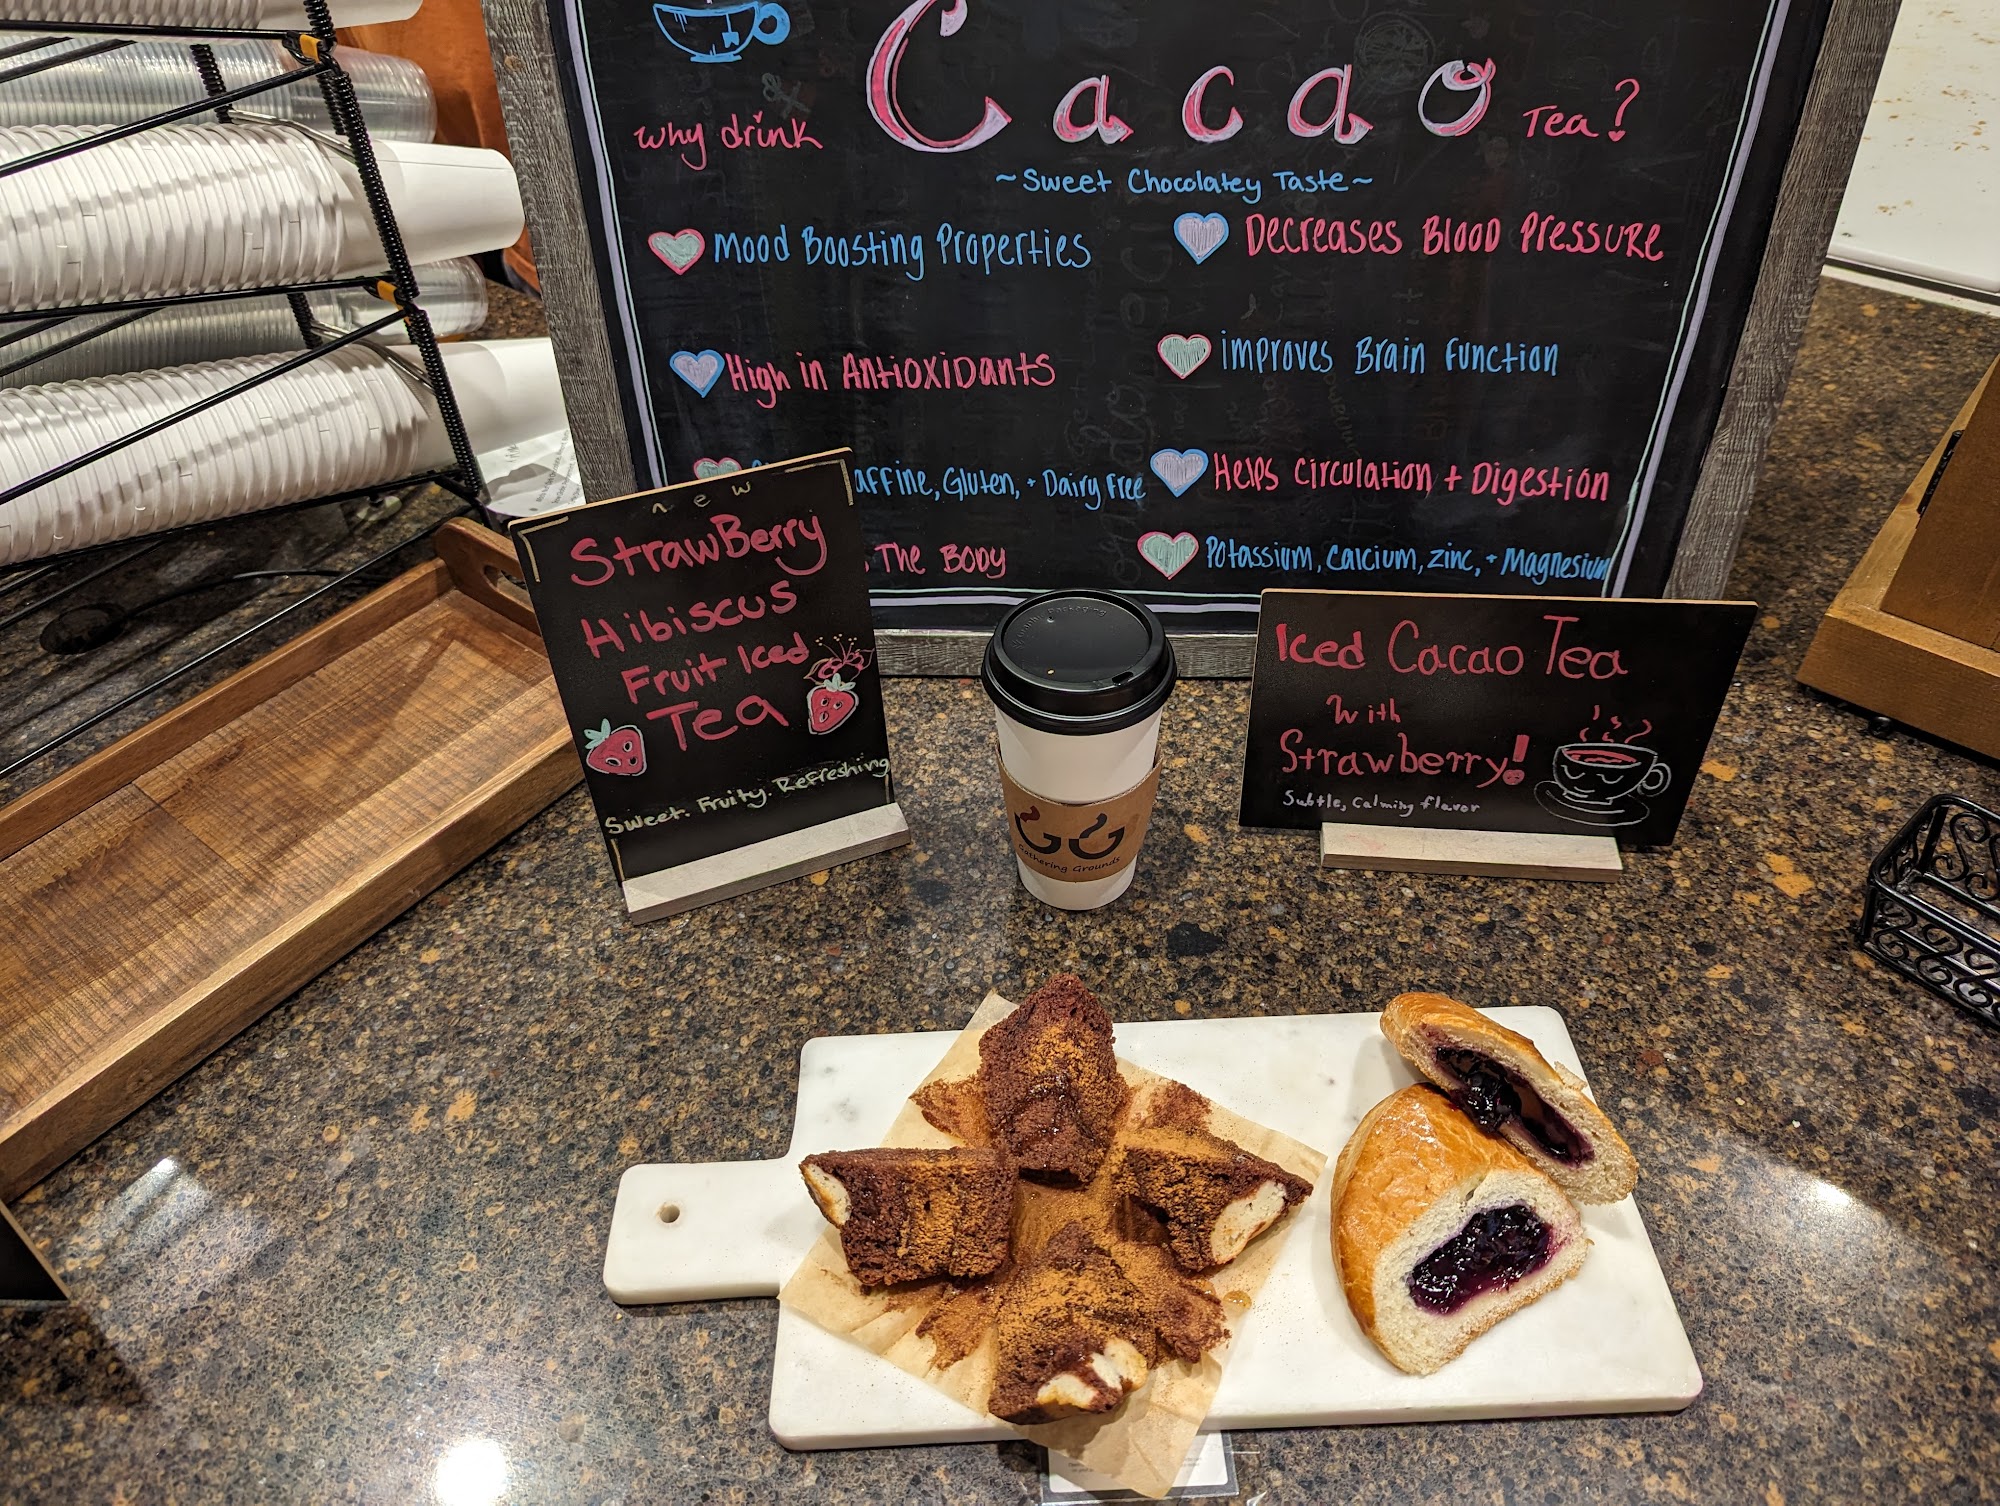 why drink Cacao Tea?
~Sweet Chocolatey Taste~
Mood Boosting Properties
Decreases Blood Pressure
High in Antioxidants
improves Brain Function
affine, Gluten, + Dairy Free
Helps Circulation + Digestion
The Body
Potassium, Calcium, Zinc, + Magnesium
new
Strawberry
Hibiscus
Fruit Iced
Tea
Sweet. Fruity. Refreshing
Iced Cacao Tea
With
Strawberry!
Subtle, Calming flavor
GG
Gathering Grounds